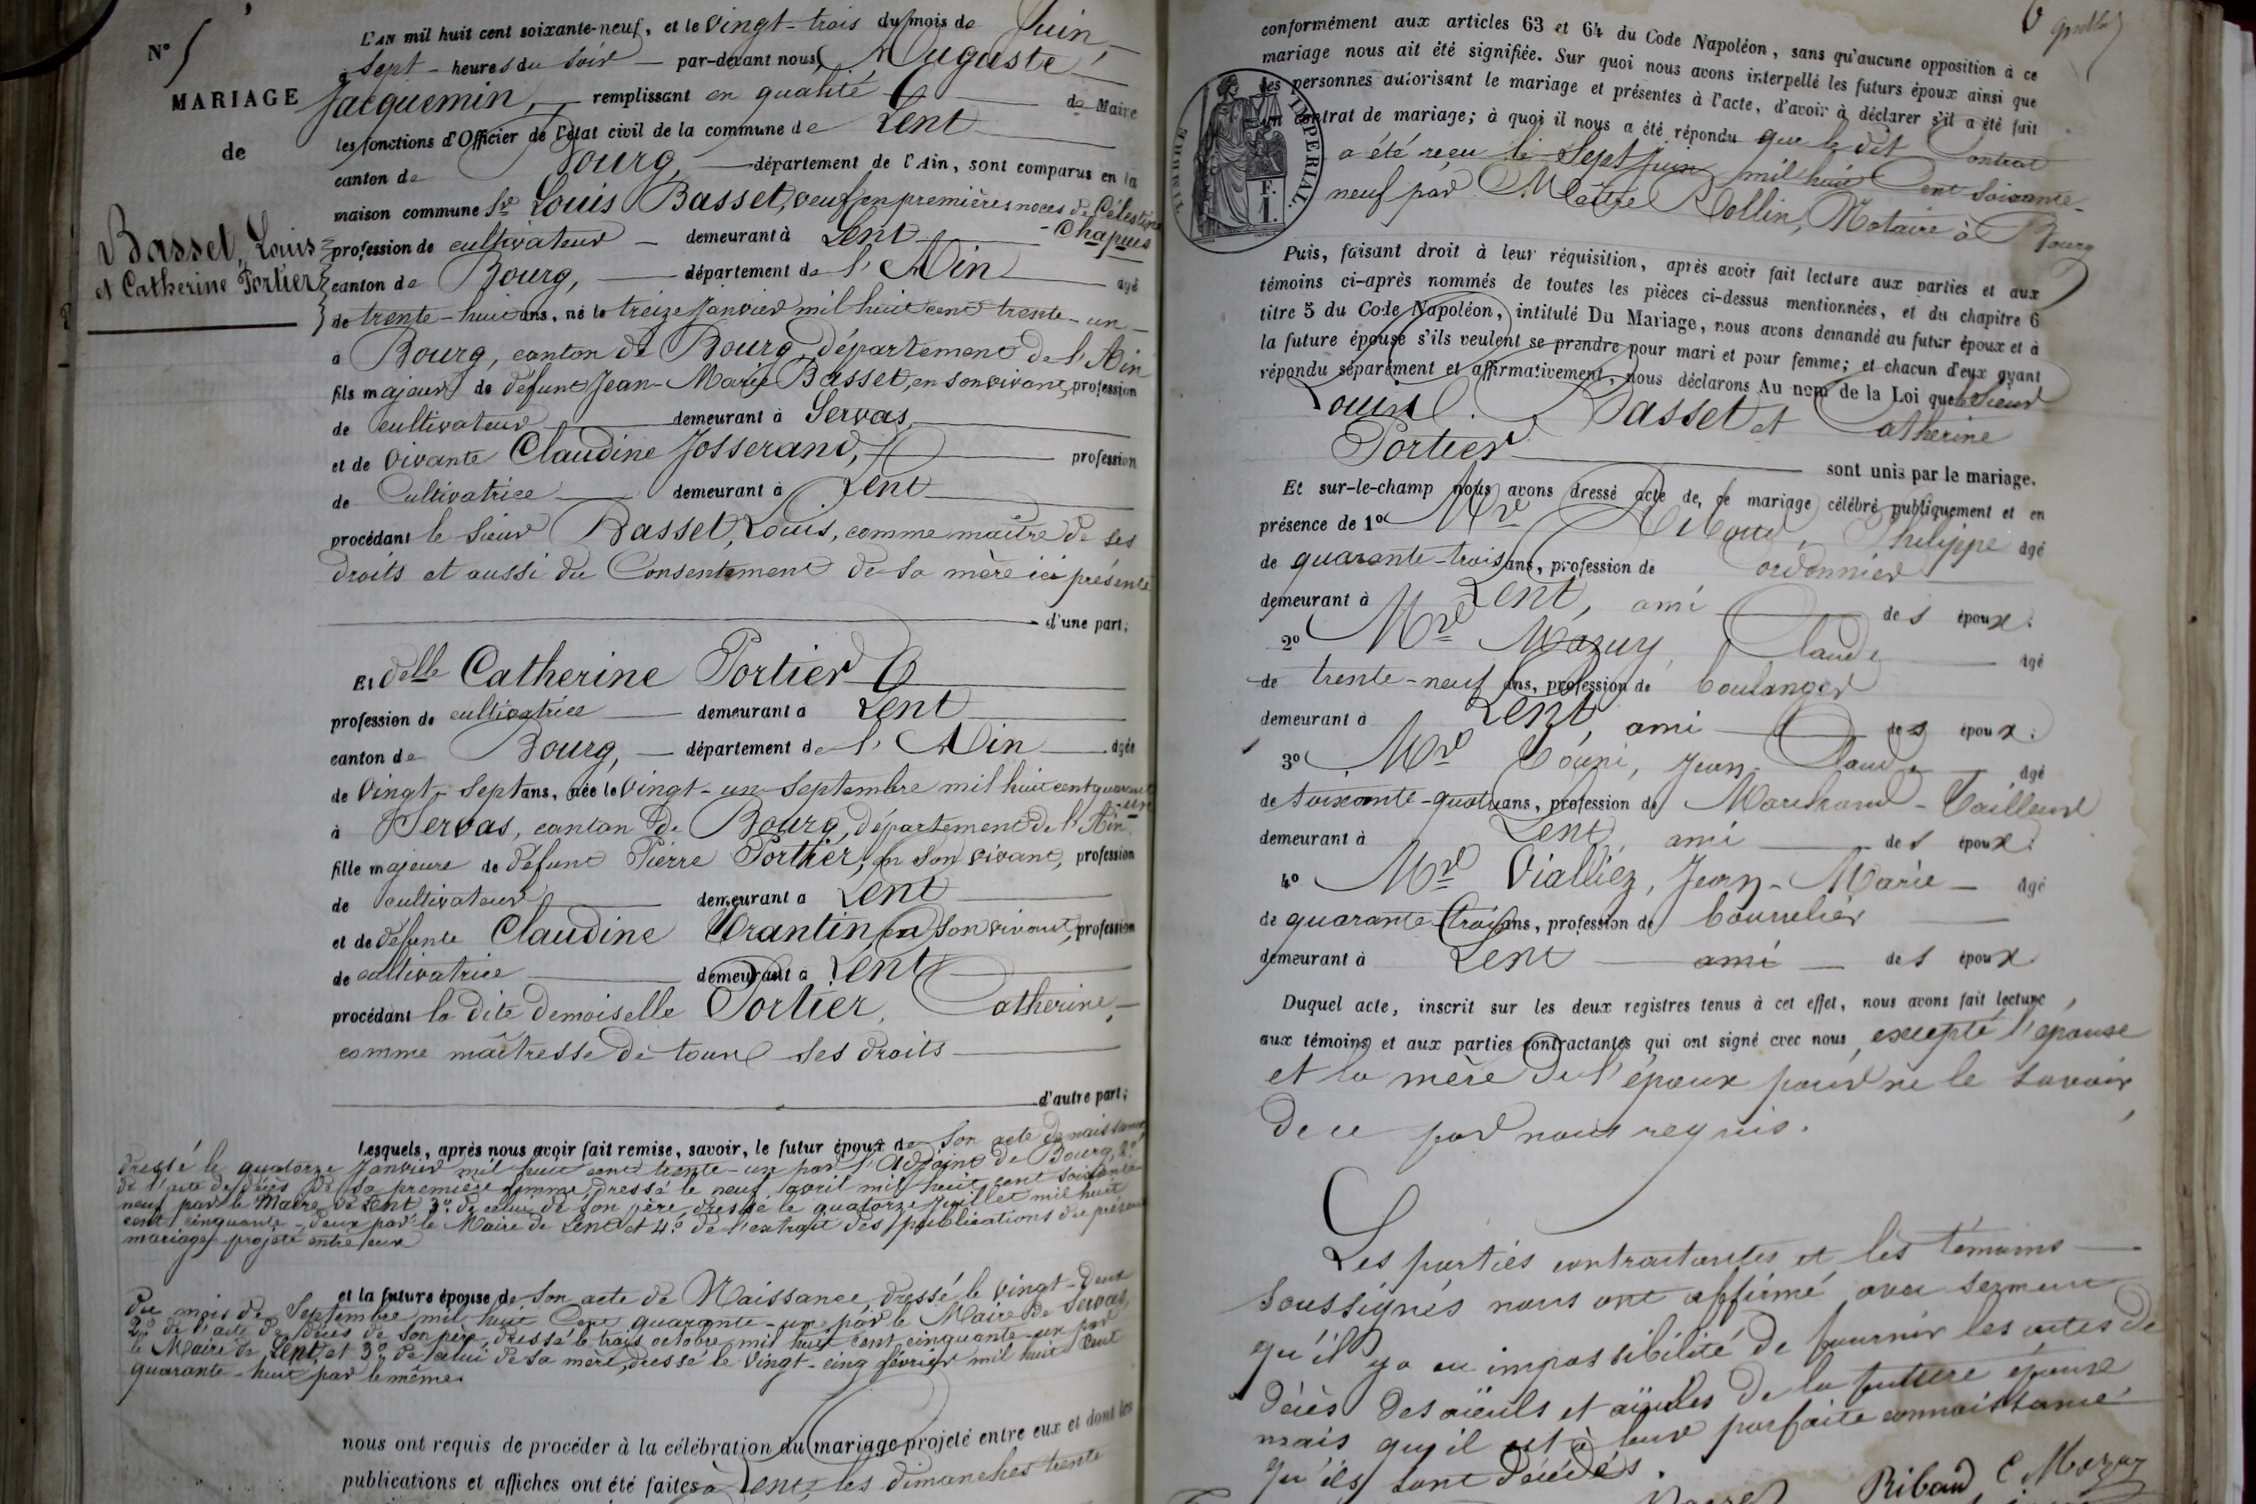 N° 5
MARIAGE
de
Basset, Louis
et Catherine Portier
L'AN mil huit cent soixante-neuf, et le vingt-trois du mois de Juin,
à sept heures du soir par-devant nous, Auguste
Jacquemin, remplissant en qualité de Maire
les fonctions d'Officier de l'état civil de la commune de Lent
canton de Bourg, département de l'Ain, sont comparus en la
maison commune Sr Louis Basset, veuf en premières noces de Célestine
Chapuis
profession de cultivateur demeurant à Lent
canton de Bourg, département de l'Ain âgé
de trente-huit ans, né le treize Janvier mil huit cent trente-un
à Bourg, canton de Bourg, département de l'Ain
fils majeur de défunt Jean-Marie Basset, en son vivant, profession
de cultivateur demeurant à Servas,
et de vivante Claudine Josserand, profession
de Cultivatrice demeurant à Lent
procédant le sieur Basset, Louis, comme maître de ses
droits et aussi du Consentement de sa mère ici présente
d'une part;
Et delle Catherine Portier
profession de cultivatrice demeurant à Lent
canton de Bourg, département de l'Ain âgée
de vingt-sept ans, née le vingt-un Septembre mil huit cent quarante
-un
à Servas, canton de Bourg, département de l'Ain
fille majeure de défunt Pierre Portier, en son vivant, profession
de cultivateur demeurant à Lent
et de défunte Claudine en son vivant, profession
de cultivatrice demeurant à Lent
procédant la dite demoiselle Portier, Catherine,
comme maîtresse de tous ses droits
d'autre part;
Lesquels, après nous avoir fait remise, savoir, le futur époux de son acte de naissance
dressé le quatorze Janvier mil huit cent trente-un par l'Adjoint de Bourg, 2°
de l'acte de décès de sa première femme, dressé le neuf avril mil huit cent soixante
neuf par le Maire de Lent 3° de celui de son père dressé le quatorze Juillet mil huit
cent cinquante-deux par le Maire de Lent et 4° de l'extrait des publications du présent
mariage projeté entre eux
et la future épouse de son acte de Naissance, dressé le vingt-deux
du mois de Septembre mil huit Cent quarante-un par le Maire de Servas,
2° de l'acte de décès de son père, dressé le trois octobre mil huit cent cinquante-un par
le Maire de Lent, et 3° de celui de sa mère, dressé le vingt-cinq février mil huit Cent
quarante-huit par le même.
nous ont requis de procéder à la célébration du mariage projeté entre eux et dont les
publications et affiches ont été faites à Lent, les dimanches trente
6
conformément aux articles 63 et 64 du Code Napoléon, sans qu'aucune opposition à ce
mariage nous ait été signifiée. Sur quoi nous avons interpellé les futurs époux ainsi que
les personnes autorisant le mariage et présentes à l'acte, d'avoir à déclarer s'il a été fait
un contrat de mariage; à quoi il nous a été répondu que le dit Contrat
a été reçu le Sept Juin mil huit Cent soixante-
neuf par Maître Rollin, Notaire à Bourg
TIMBRE IMPERIAL.
Puis, faisant droit à leur réquisition, après avoir fait lecture aux parties et aux
témoins ci-après nommés de toutes les pièces ci-dessus mentionnées, et du chapitre 6
titre 5 du Code Napoléon, intitulé Du Mariage, nous avons demandé au futur époux et à
la future épouse s'ils veulent se prendre pour mari et pour femme; et chacun d'eux ayant
répondu séparément et affirmativement, nous déclarons Au nom de la Loi que le Sieur
Louis Basset et Catherine
Portier
sont unis par le mariage.
Et sur-le-champ nous avons dressé acte de ce mariage célébré publiquement et en
présence de 1° Mr Riboud, Philippe âgé
de quarante-trois ans, profession de Cordonnier
demeurant à Lent, ami des époux.
2° Mr Mazuy, Claude âgé
de trente-neuf ans, profession de boulanger
demeurant à Lent, ami des époux.
3° Mr Jean-Claude âgé
de soixante-quatre ans, profession de Marchand-Tailleur
demeurant à Lent, ami des époux.
4° Mr Vialliez, Jean-Marie âgé
de quarante-trois ans, profession de bourrelier
demeurant à Lent ami des époux
Duquel acte, inscrit sur les deux registres tenus à cet effet, nous avons fait lecture,
aux témoins et aux parties contractantes qui ont signé avec nous, excepté l'épouse
et la mère de l'époux pour ne le savoir
de ce par nous requis.
Les parties contractantes et les témoins
soussignés nous ont affirmé avec serment
qu'il y a eu impossibilité de fournir les actes de
décès des aïeuls et aïeules de la future épouse
mais qu'il est à leur parfaite connaissance
qu'ils sont décédés.
Riboud C Mazuy